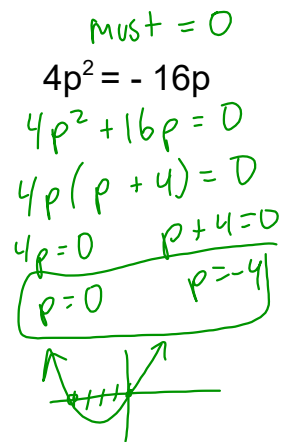 must = 0
4p² = - 16p
4p² + 16p = 0
4p(p + 4) = 0
4p = 0 p + 4 = 0
p = 0 p = -4